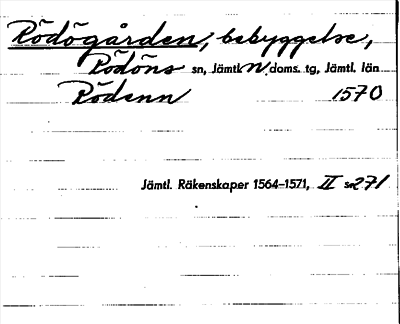 Rödögården, bebyggelse,
Rödöns sn, Jämtl. N doms. tg, Jämtl. län
Rödenn 1570
Jämtl. Räkenskaper 1564–1571, II s. 271